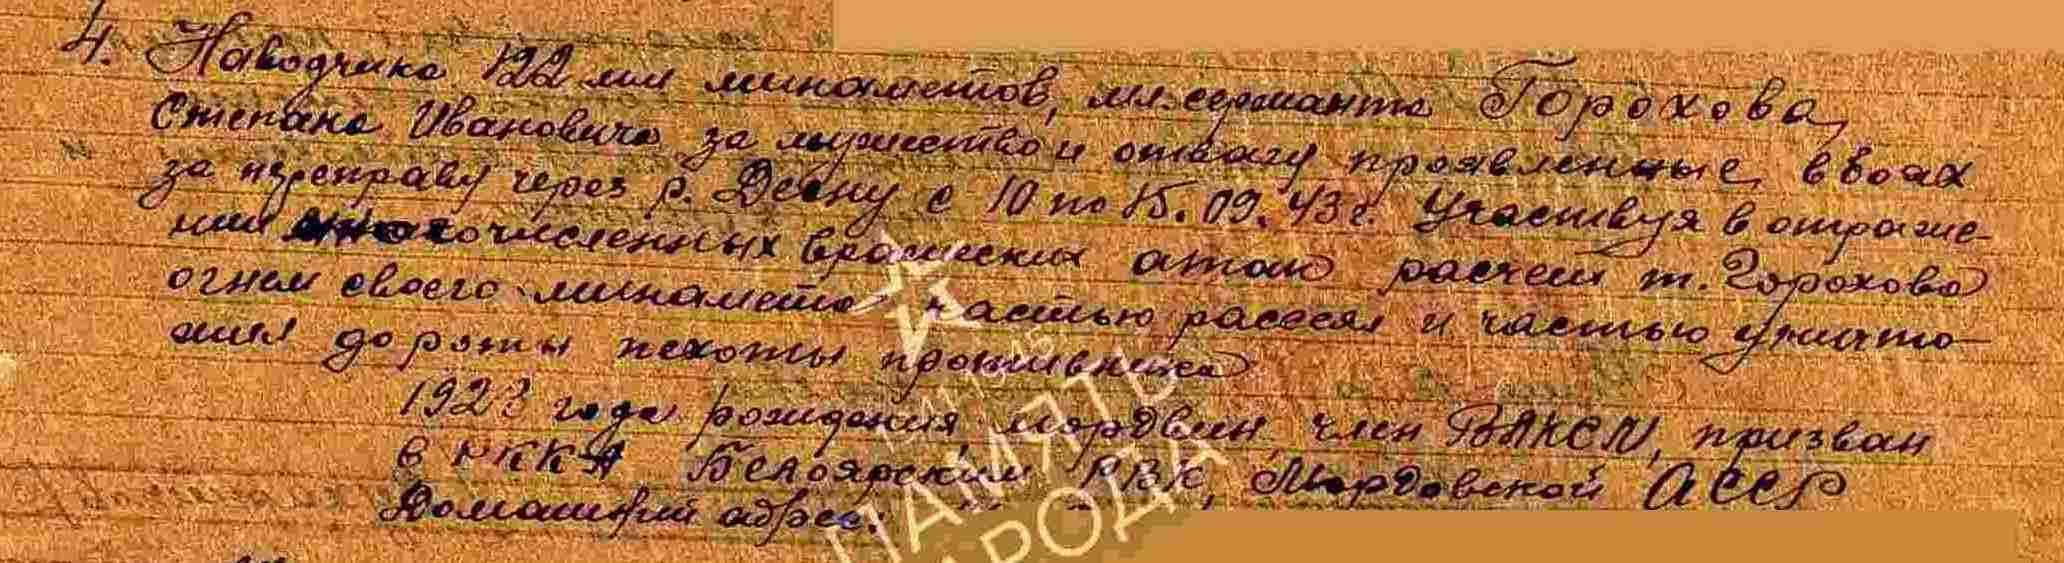 4. Наводчика 122 мм минаметов, мл. сержанта Горохова,
Степана Ивановича за мужество и отвагу проявленные в боях
за переправу через р. Десну с 10 по 15.09.43 г. Участвуя в отраже-
нии многочисленных вражеских атак расчет т. Горохова
огнем своего минамета частью рассеял и частью уничто-
жил до роты пехоты противника
года рождения мордвин, член ВЛКСМ, призван
в РККА Белоярским РВК, Мордовской АССР
Домашний адрес:
ПАМЯТЬ
НАРОДА